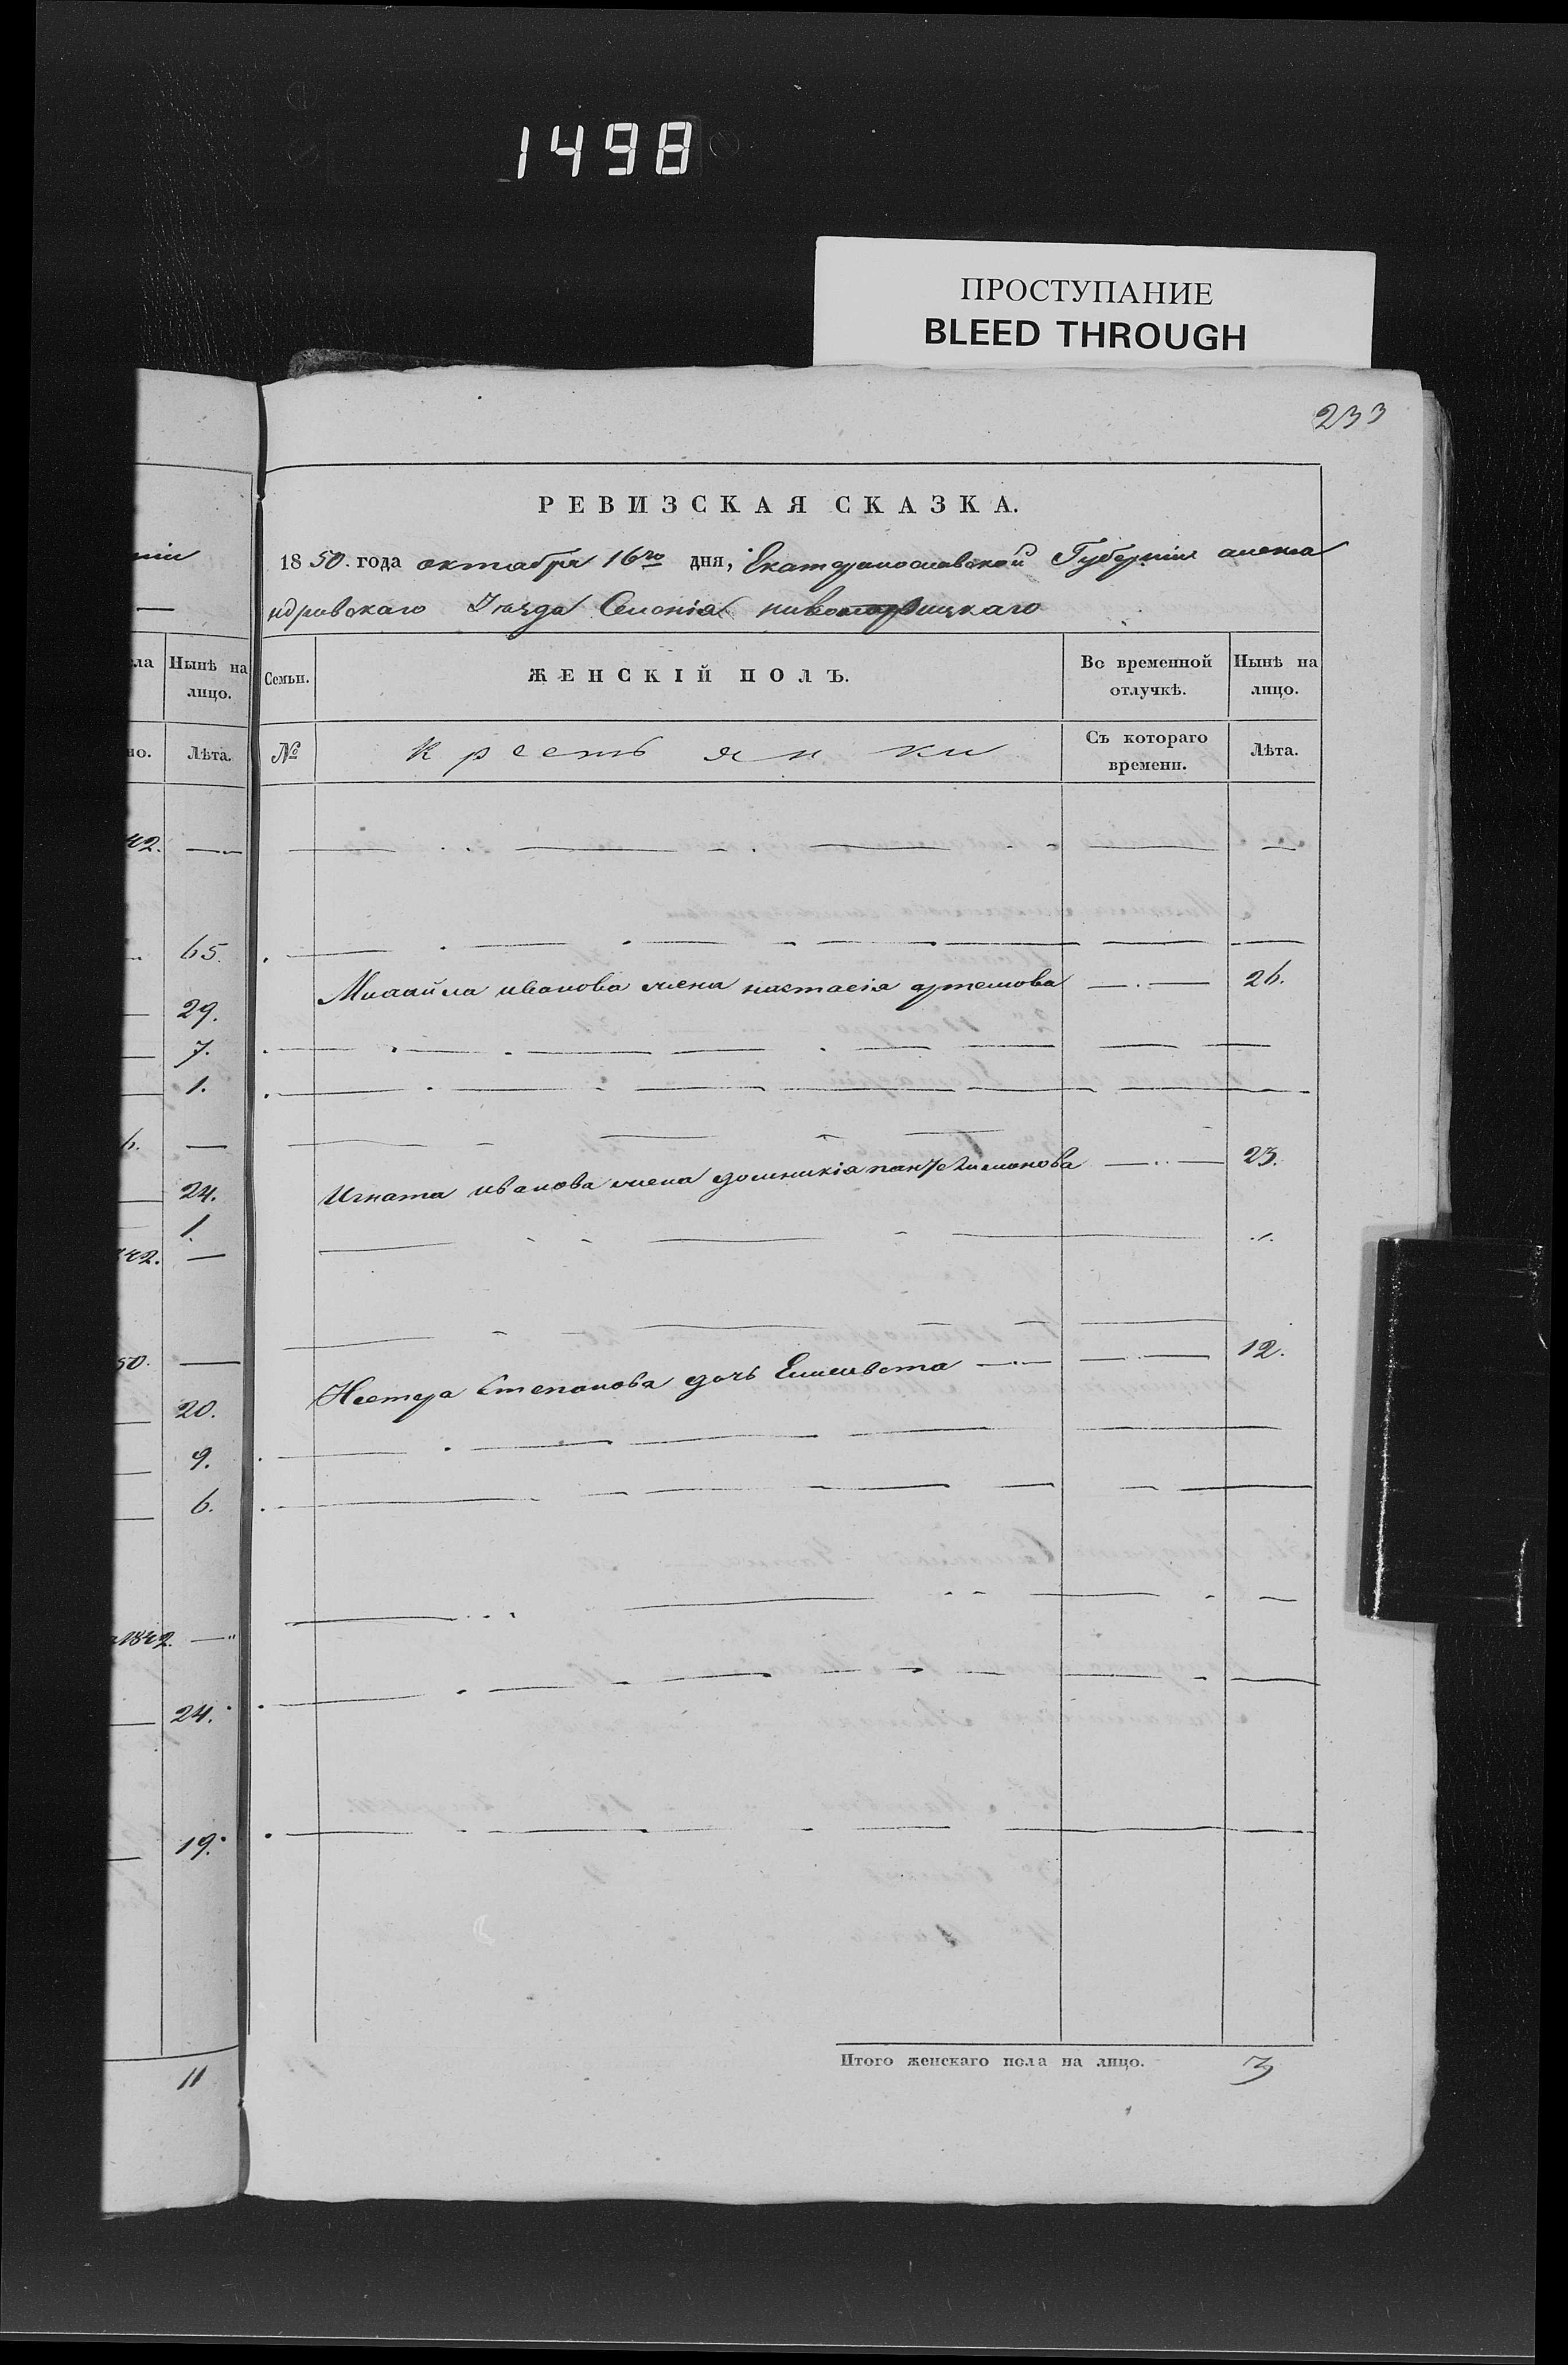 1498
ПРОСТУПАНИЕ
BLEED THROUGH
233
РЕВИЗСКАЯ СКАЗКА.
1850. года октября 16го дня, Екатеринославской Губерніи алекса
ндровскаго Уѣзда Селенія
ла Нынѣ на лицо.
Семьи. ЖЕНСКІЙ ПОЛЪ. Во временной отлучкѣ. Нынѣ на лицо.
но. Лѣта.
№ Крестьянки Съ котораго времени. Лѣта.
42. —
65.
29. Михайла иванова жена настасія артемова — 26.
7.
1.
6. —
24. Игната иванова жена домникія пантелимонова — 23.
1.
842. —
50. —
20. Нестера Степанова дочь Елисавета — 12.
9.
6.
1842. —
24.
19.
11
Итого женскаго пола на лицо. 3